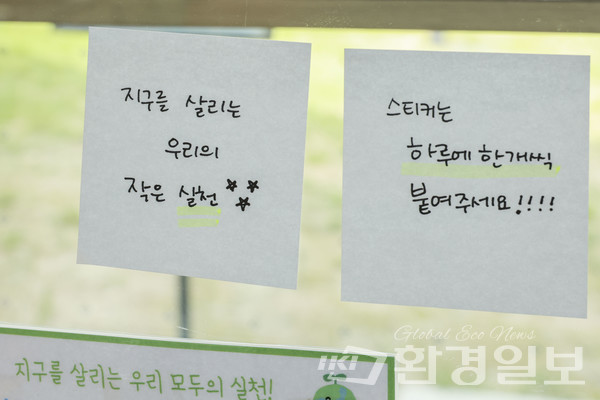 지구를 살리는
우리의
작은 실천
스티커는
하루에 한개씩
붙여주세요!!!!
Global Eco News
환경일보
지구를 살리는 우리 모두의 실천!